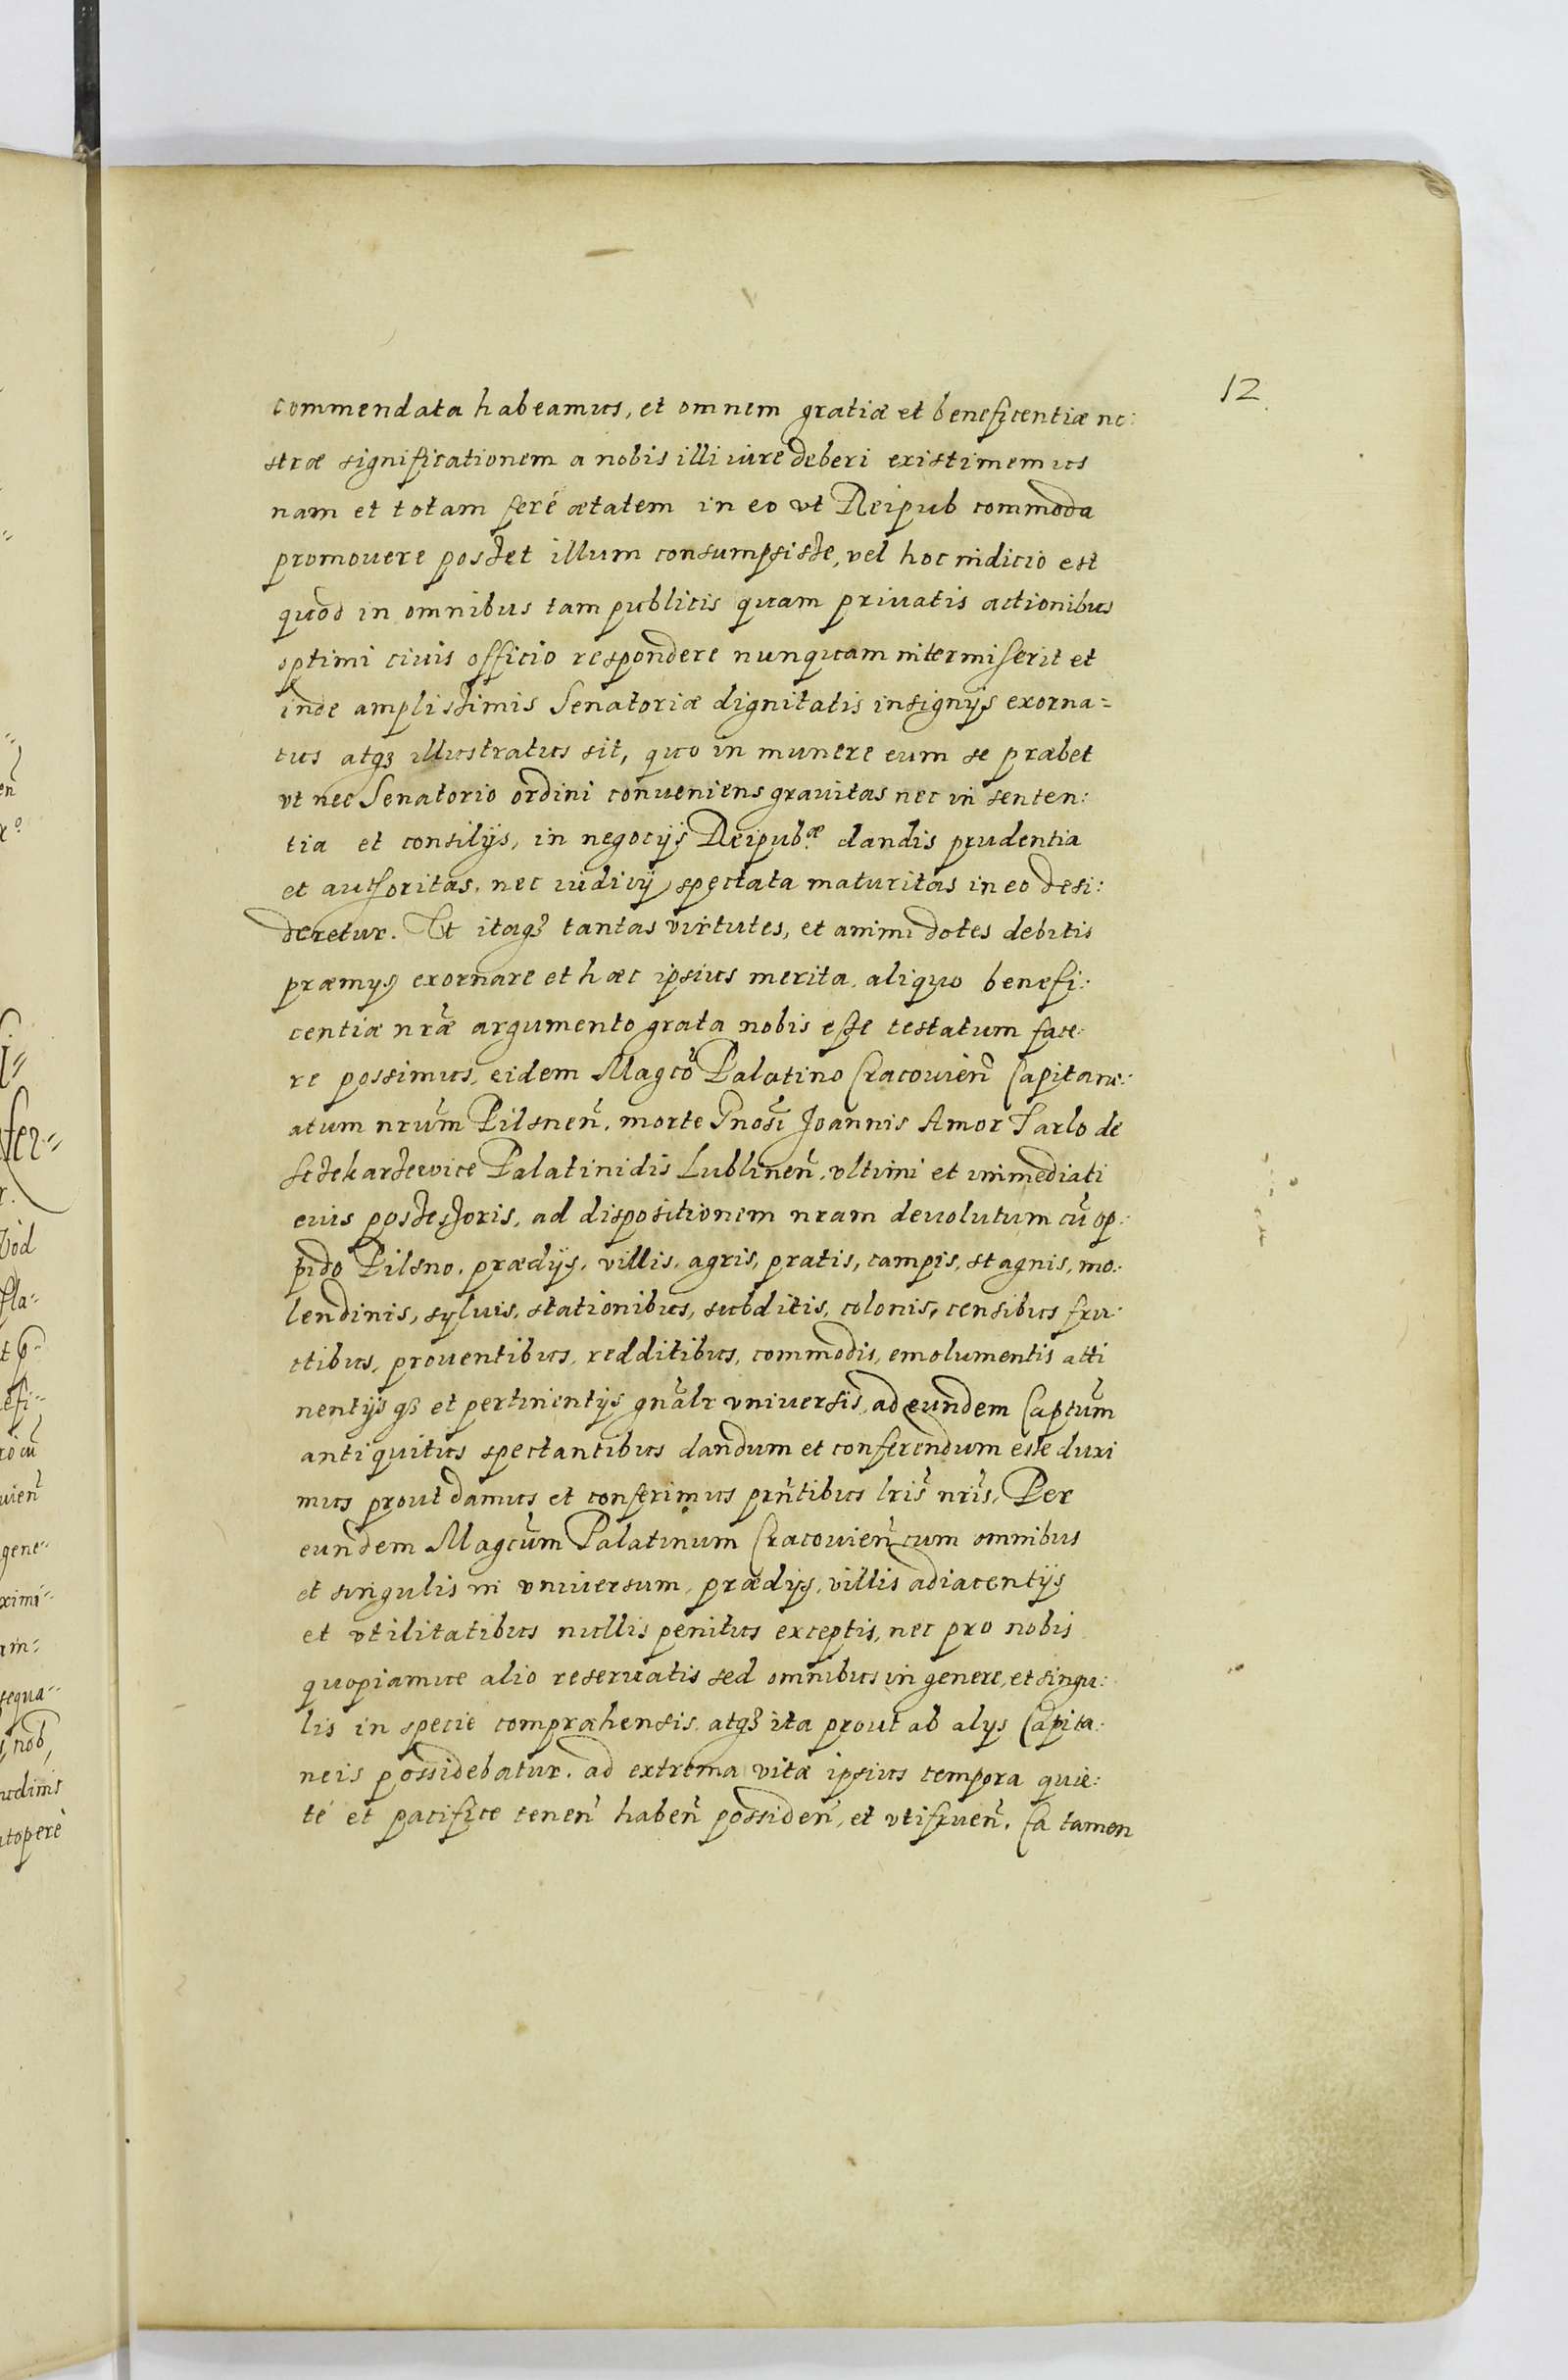 12
commendata habeamus, et omnem gratiæ et beneficentiæ no:
stræ significationem a nobis illi iure deberi existimemus
nam et totam feré ætatem in eo vt Reipub commoda
promouere posset illum consumpsisse, vel hoc indicio est
quod in omnibus tam publicis quam priuatis actionibus
optimi ciuis officio respondere nunquam intermiserit et
inde amplissimis Senatoriæ dignitatis insignijs exorna=
tus atqʒ illustratus sit, quo in munere eum se præbet
vt nec Senatorio ordini conueniens grauitas nec in senten:
tia et consilijs, in negocijs Reipub.æ dandis prudentia
et authoritas, nec iudicij spectata maturitas in eo desi:
deretur. Vt itaqʒ tantas virtutes, et animi dotes debitis
præmys exornare et hæc ipsius merita, aliquo benefi:
centiæ nr̃æ argumento grata nobis esse testatum face:
re possimus, eidem Magcõ Palatino Cracouien̄ Capitane:
atum nrũm Pilsnen̄, morte Gnosĩ Joannis Amor Tarlo de
Sczekarzewice Palatinidis Lublinen̄, vltimi et immediati
euis possessoris, ad dispositionem nram deuolutum cũ op:
pido Pilsno, prædijs, villis, agris, pratis, campis, stagnis, mo:
lendinis, syluis, stationibus, subditis, colonis, censibus fru:
ctibus, prouentibus, redditibus, commodis, emolumentis atti
nentijs qʒ et pertinentijs gnãlr vniuersis, ad eundem Captũm
antiquitus spectantibus dandum et conferendum esse duxi
mus prout damus et conferimus prñtibus lris̃ nris̃, Per
eundem Magcũm Palatinum Cracouien̄ cum omnibus
et singulis in vniuersum, prædijs, villis adiacentijs
et vtilitatibus nullis penitus exceptis, nec pro nobis
quopiamue alio reseruatis sed omnibus in genere, et singu:
lis in specie compræhensis, atqʒ ita prout ab alijs Capita:
neis possidebatur, ad extrema vitæ ipsius tempora quie:
té et pacifice tenen̄ haben̄ possiden̄, et vtifruen̄. Ea tamen